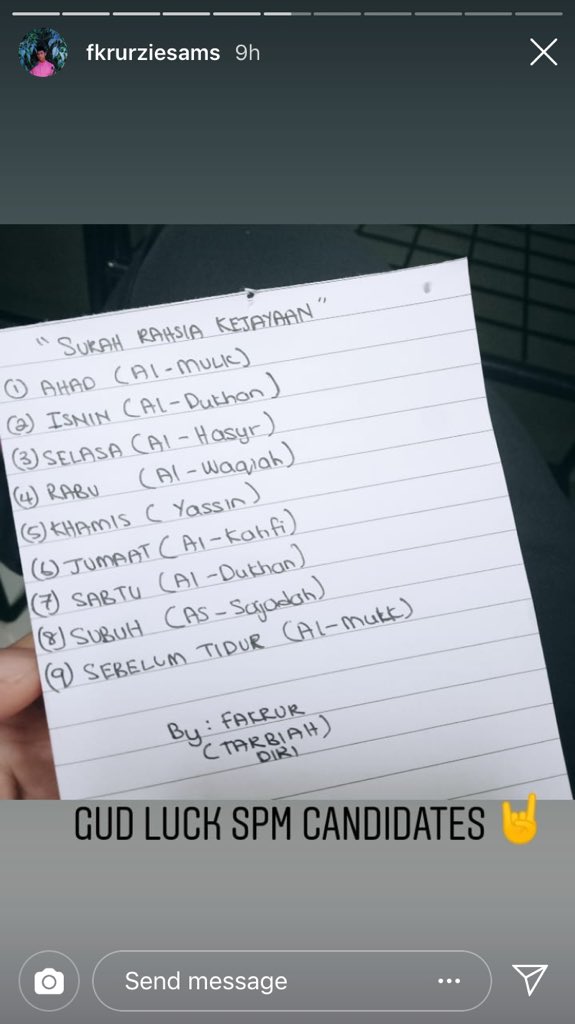 fkrurziesams 9h
"SURAH RAHSIA KEJAYAAN"
(1) AHAD (Al-MULK)
(2) ISNIN (AL-Dukhan)
(3) SELASA (Al-Hasyr)
(4) RABU (Al-Waqiah)
(5) KHAMIS (Yassin)
(6) JUMAAT (Al-Kahfi)
(7) SABTU (Al-Dukhan)
(8) SUBUH (AS-Sajadah)
(9) SEBELUM TIDUR (Al-mulk)
By: FAKRUR
(TARBIAH)
DIRI
GUD LUCK SPM CANDIDATES 🤘
Send message